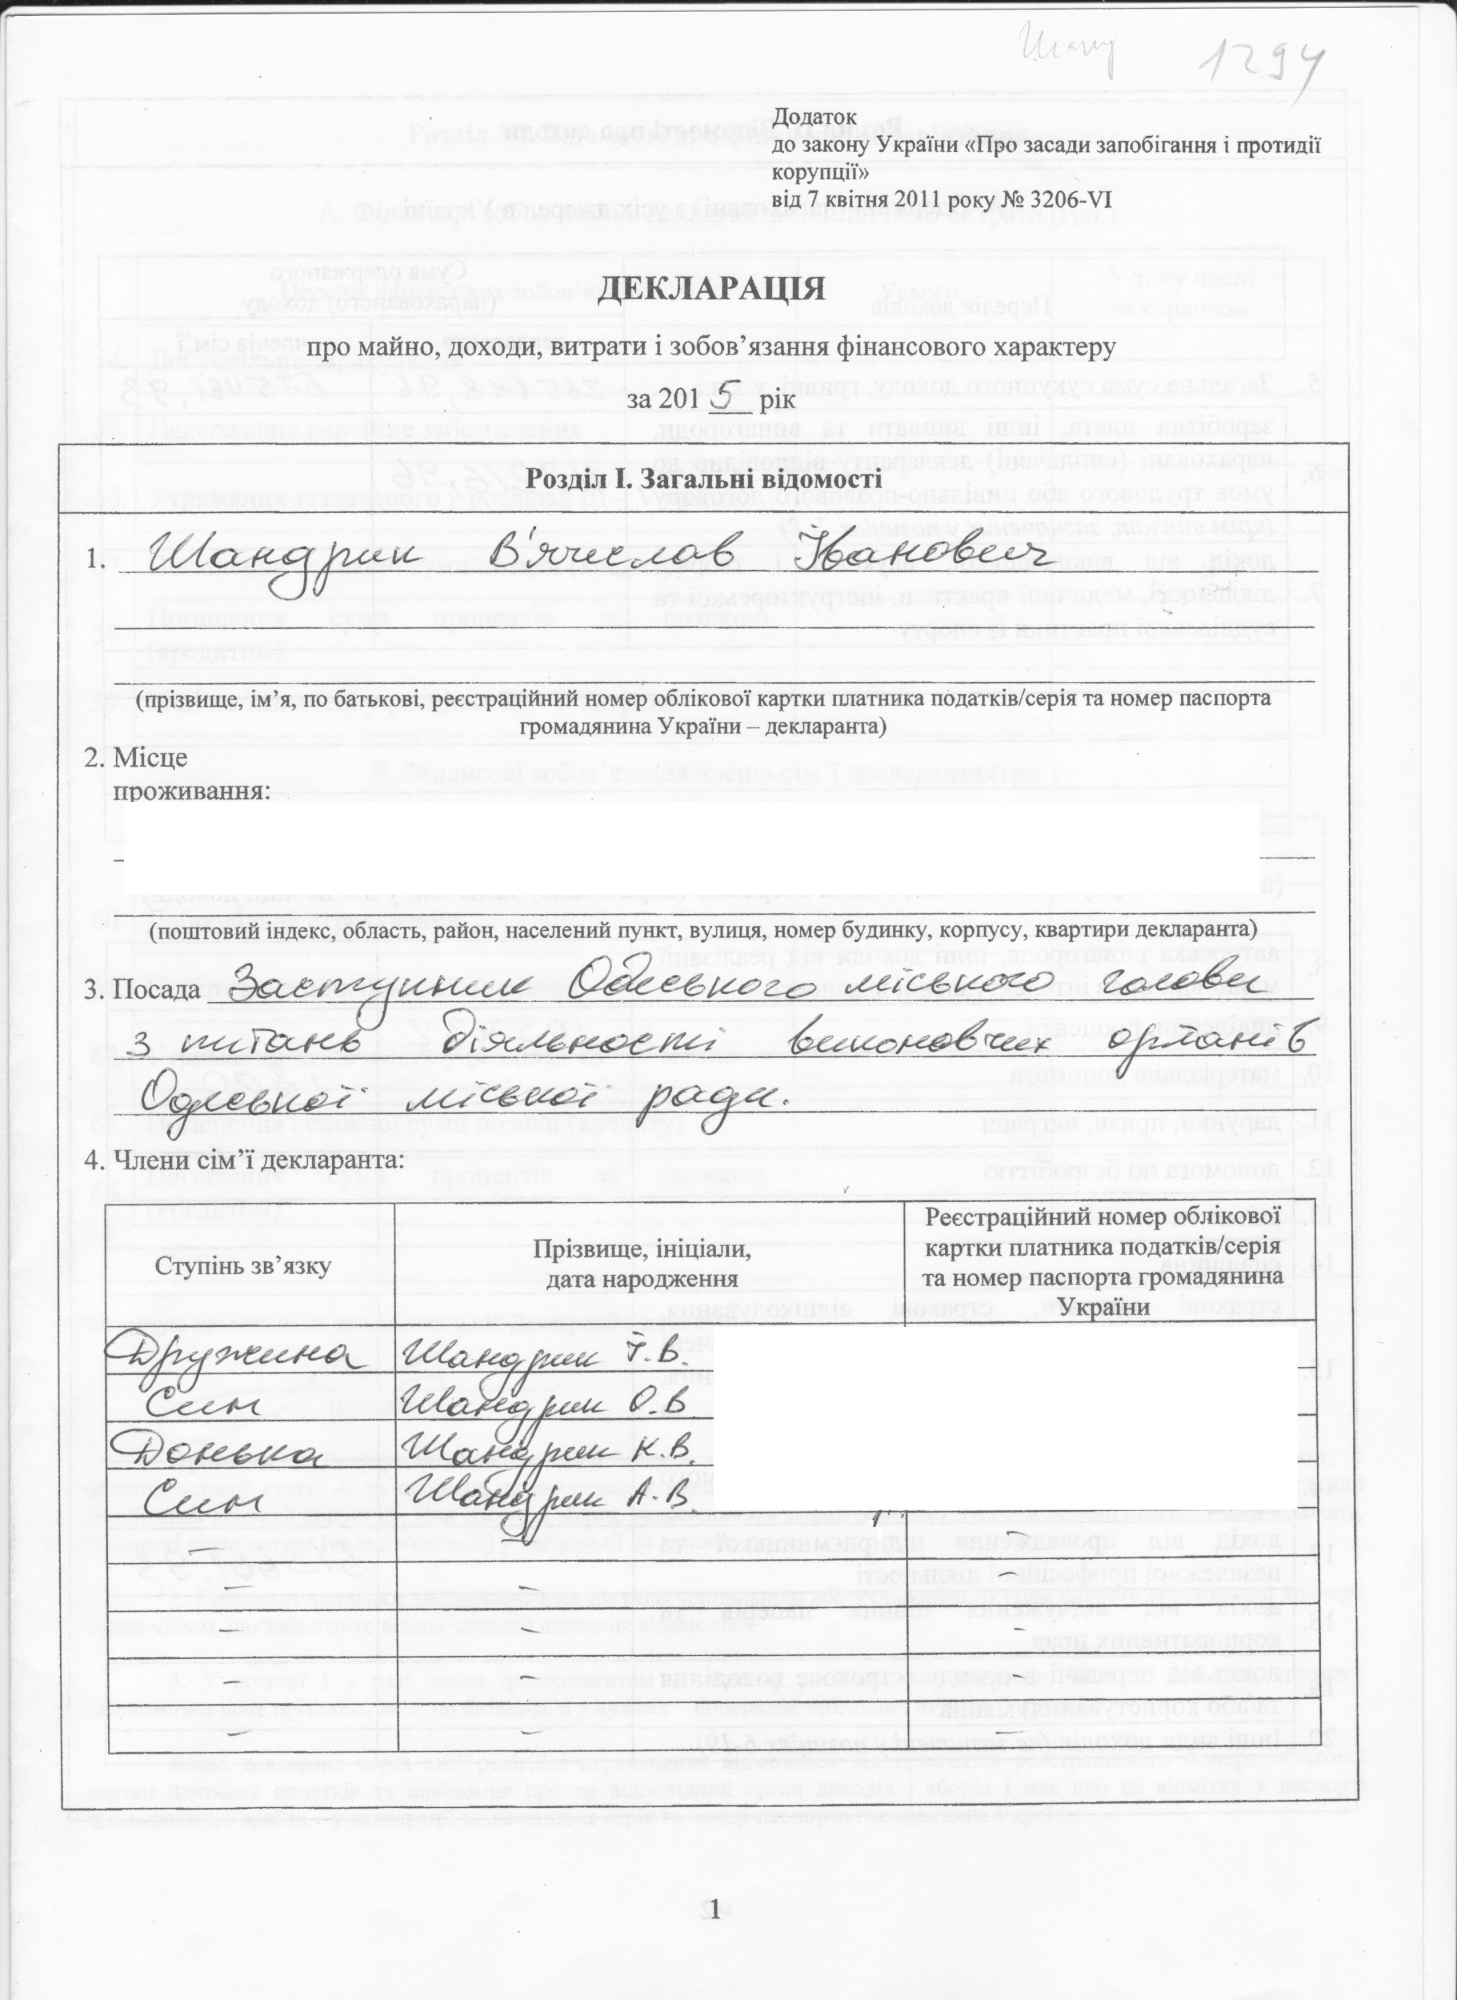 1294
Додаток
до закону України «Про засади запобігання і протидії
корупції»
від 7 квітня 2011 року № 3206-VI
ДЕКЛАРАЦІЯ
про майно, доходи, витрати і зобов’язання фінансового характеру
за 2015 рік
Розділ I. Загальні відомості
1. Шандрик В'ячеслав Іванович
(прізвище, ім’я, по батькові, реєстраційний номер облікової картки платника податків/серія та номер паспорта
громадянина України – декларанта)
2. Місце
проживання:
(поштовий індекс, область, район, населений пункт, вулиця, номер будинку, корпусу, квартири декларанта)
3. Посада Заступник Одеського міського голови
з питань діяльності виконавчих органів
Одеської міської ради.
4. Члени сім’ї декларанта:
Ступінь зв’язку Прізвище, ініціали, дата народження Реєстраційний номер облікової картки платника податків/серія та номер паспорта громадянина України
Дружина Шандрик І.В.
Син Шандрик О.В.
Донька Шандрик К.В.
Син Шандрик А.В.
– – –
– – –
– – –
– – –
– – –
1